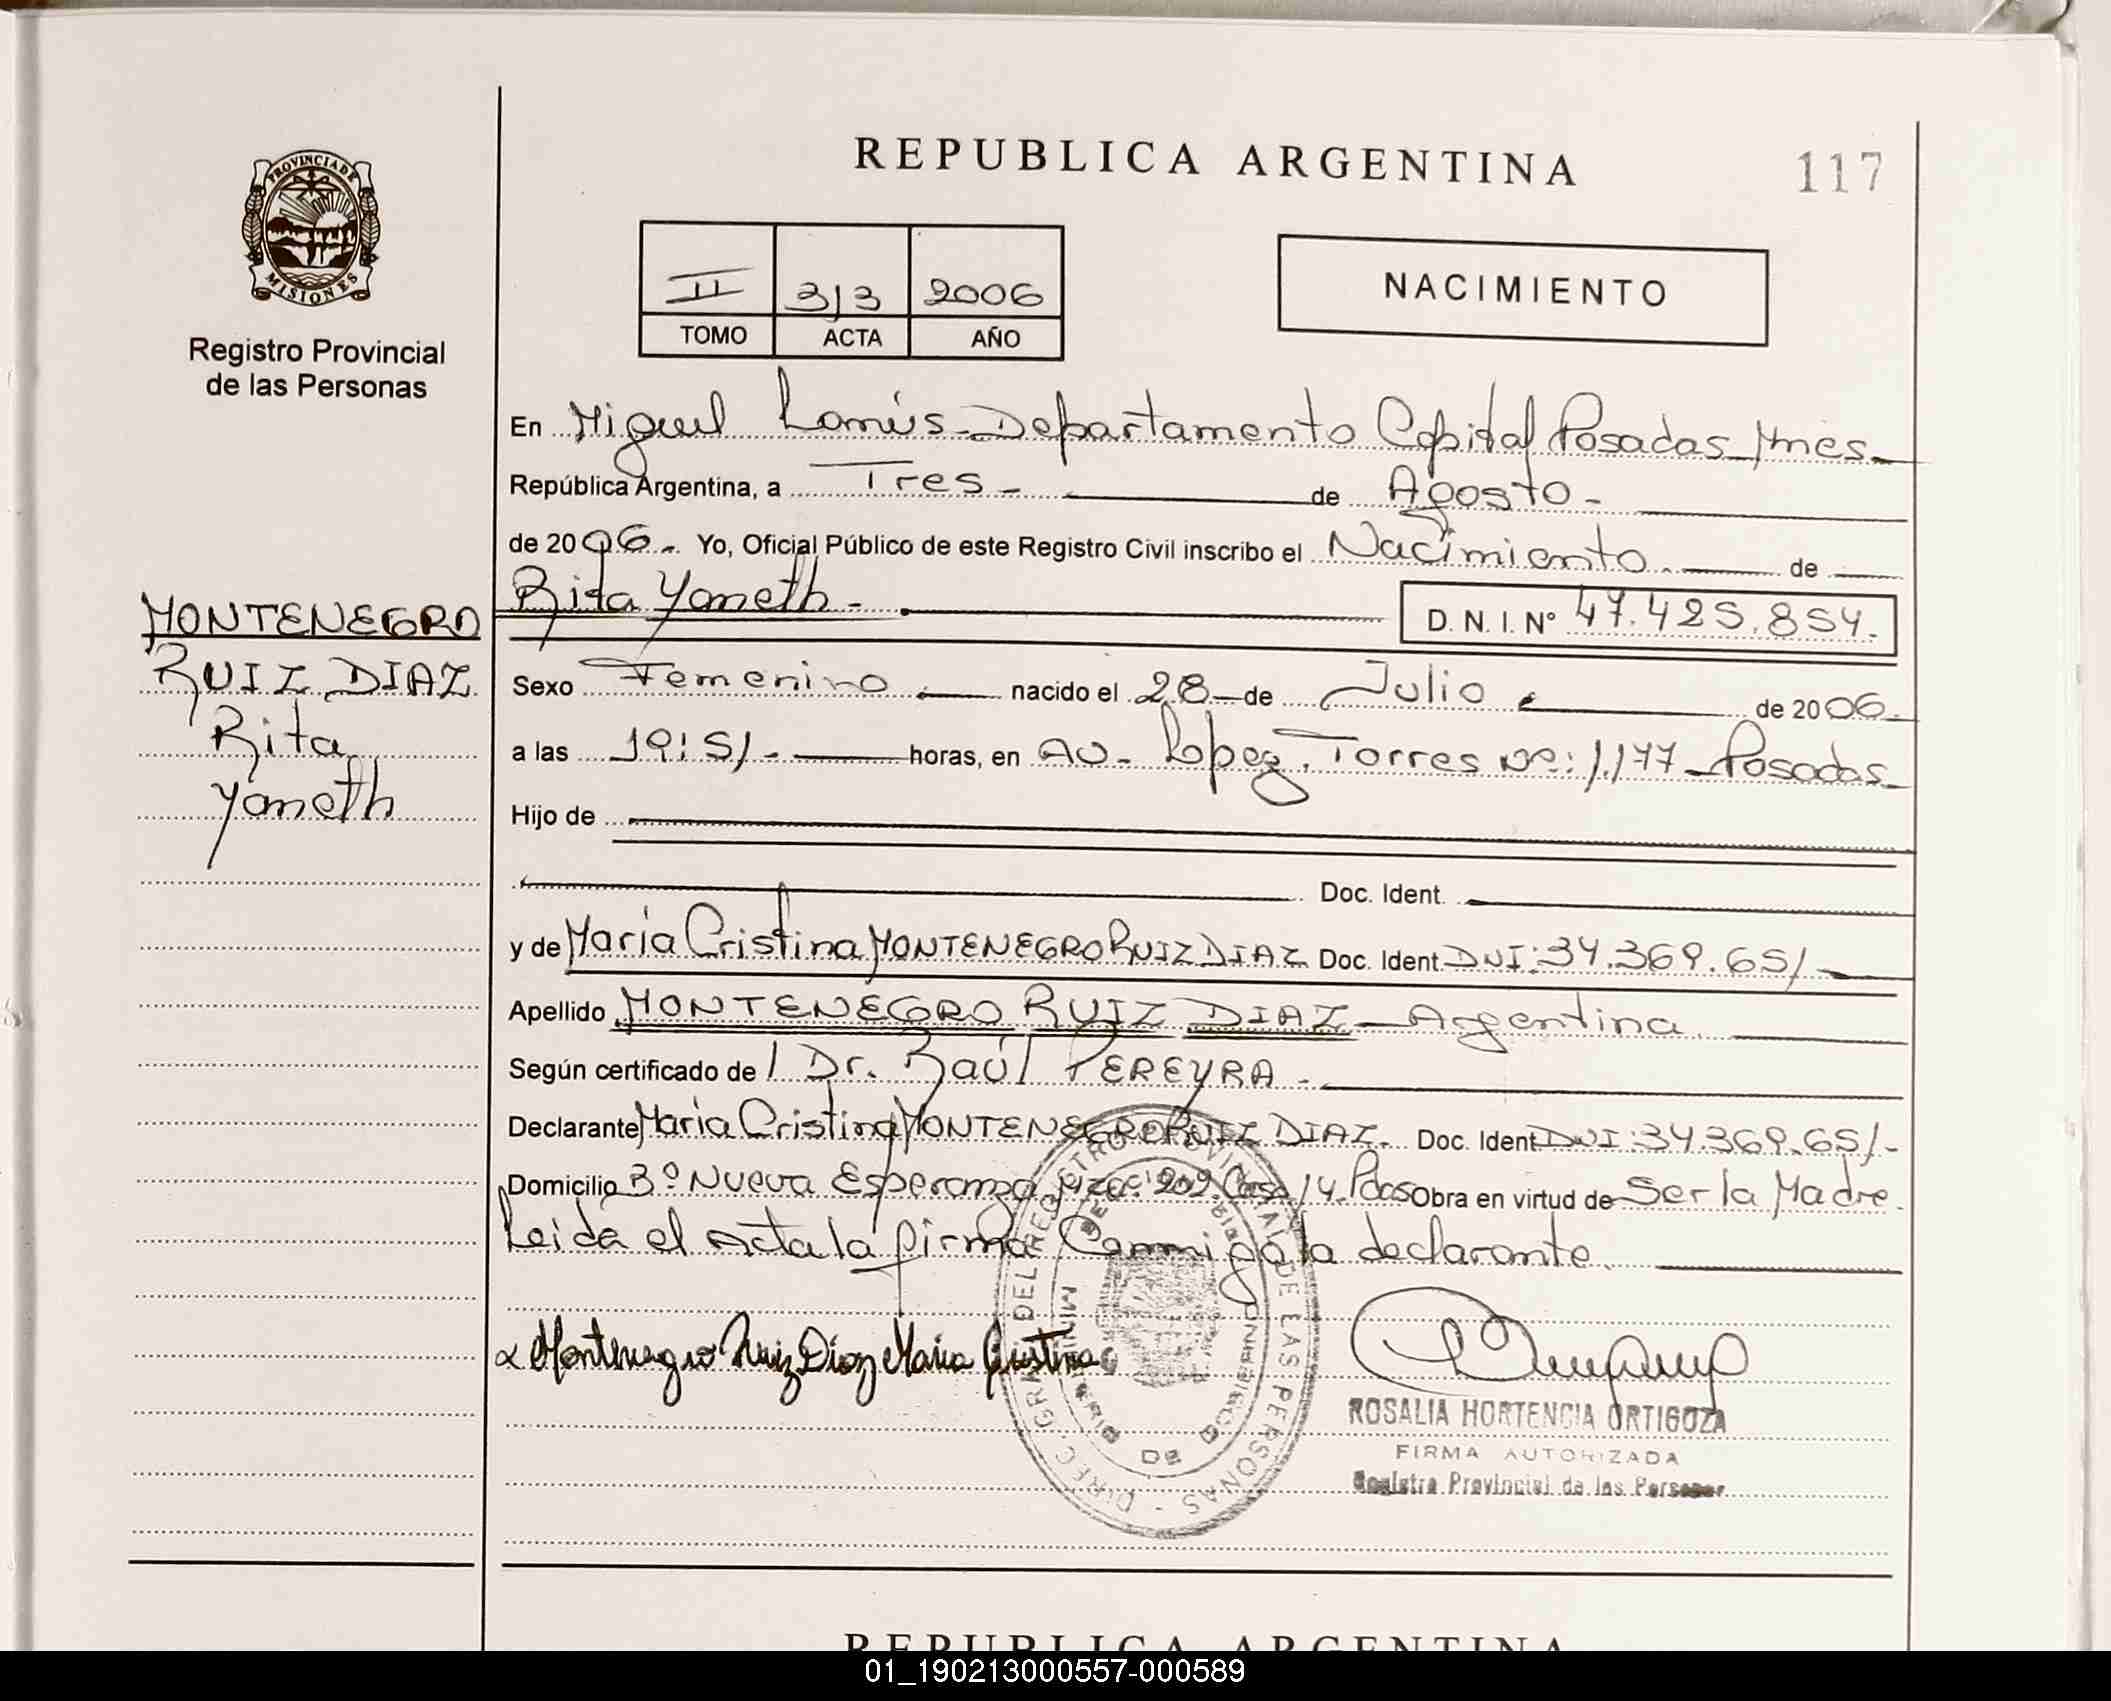 REPUBLICA ARGENTINA
117
PROVINCIA DE
MISIONES
Registro Provincial
de las Personas
II 313 2006
TOMO ACTA AÑO
NACIMIENTO
En Miguel Lanús - Departamento Capital Posadas Mnes -
República Argentina, a Tres - de Agosto -
de 2006 - Yo, Oficial Público de este Registro Civil inscribo el Nacimiento de
Rita Yaneth -
D. N. I. Nº 47.425.854.
MONTENEGRO
RUIZ DIAZ
Rita
Yaneth
Sexo Femenino nacido el 28 de Julio de 2006.
a las 19:51 - horas, en Av - Lopez Torres Nº: 1.177 - Posadas
Hijo de
Doc. Ident.
y de María Cristina MONTENEGRO RUIZ DIAZ Doc. Ident. DNI: 34.369.651
Apellido MONTENEGRO RUIZ DIAZ - Argentina
Según certificado de / Dr. Raúl PEREYRA -
Declarante María Cristina MONTENEGRO RUIZ DIAZ. Doc. Ident DNI: 34.369.651 -
Domicilio Bº Nueva Esperanza 202 Casa 14 Pdas Obra en virtud de Ser la Madre.
Leida el Acta la firma Conmigo la declarante
Montenegro Ruiz Diaz Maria Cristina
DIREC GRAL DEL REGISTRO PROVINCIAL DE LAS PERSONAS -
MINISTERIO DE GOBIERNO
ROSALIA HORTENCIA ORTIGOZA
FIRMA AUTORIZADA
Registro Provincial de las Personas
REPUBLICA ARGENTINA
01_190213000557-000589